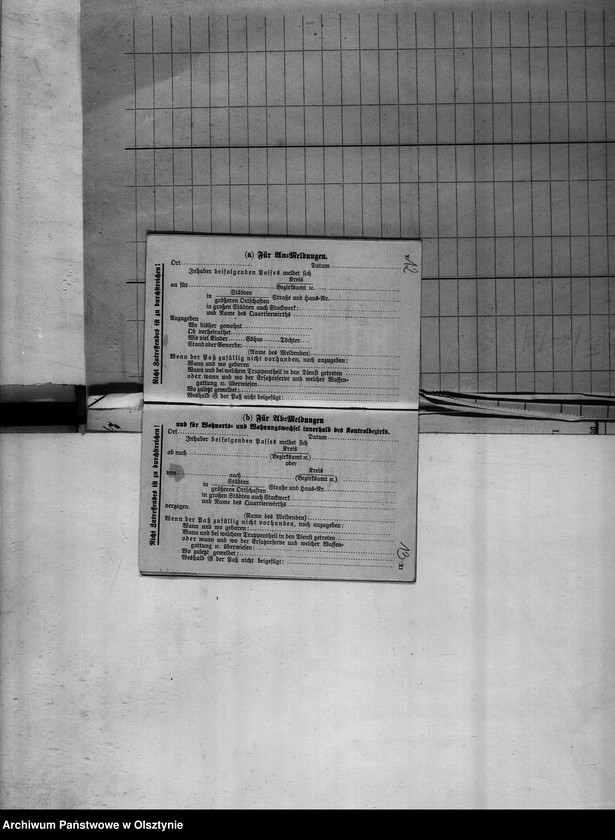 12
(a) Für An-Meldungen.
Nicht Zutreffendes ist zu durchstreichen!
Ort Datum
Inhaber beifolgenden Passes meldet sich
Kreis
an für Bezirksamt ꝛc.
Städten
in größeren Ortschaften Straße und Haus-Nr.
in großen Städten auch Stockwerk:
und Name des Quartierwirths
Anzugeben
Wo bisher gewohnt
Ob verheirathet
Wie viel Kinder Söhne Töchter
Stand oder Gewerbe:
(Name des Meldenden)
Wenn der Paß zufällig nicht vorhanden, noch anzugeben:
Wann und wo geboren
Wann und bei welchem Truppentheil in den Dienst getreten
oder wann und wo der Ersatzreserve und welcher Waffen-
gattung ꝛc. überwiesen
Wo zuletzt gemeldet:
Weshalb ist der Paß nicht beigefügt:
(b) Für Ab-Meldungen
und für Wohnorts- und Wohnungswechsel innerhalb des Kontrolbezirks.
Nicht Zutreffendes ist zu durchstreichen!
Ort Datum
Inhaber beifolgenden Passes meldet sich
Kreis
ab nach (Bezirksamt ꝛc.)
oder
Kreis
von nach (Bezirksamt ꝛc.)
Städten
in größeren Ortschaften Straße und Haus-Nr.
in großen Städten auch Stockwerk
und Name des Quartierwirths
verzogen.
(Name des Meldenden)
Wenn der Paß zufällig nicht vorhanden, noch anzugeben:
Wann und wo geboren:
Wann und bei welchem Truppentheil in den Dienst getreten
oder wann und wo der Ersatzreserve und welcher Waffen-
gattung ꝛc. überwiesen:
Wo zuletzt gemeldet:
Weshalb ist der Paß nicht beigefügt:
13
XI
Archiwum Państwowe w Olsztynie